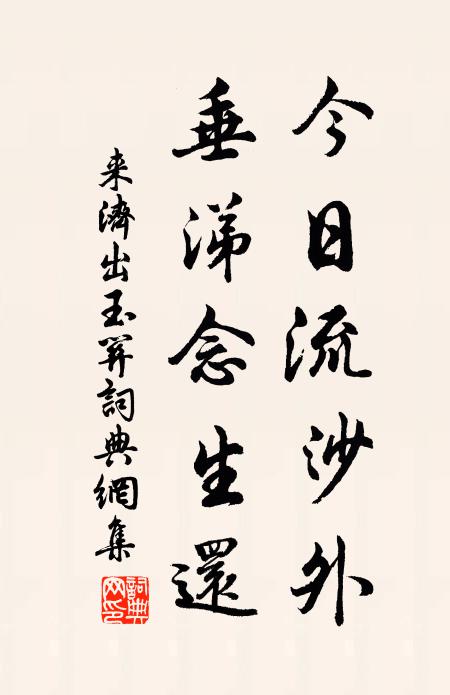 今日流沙外
垂涕念生還
来濟出玉関詞典網集
詞典网印